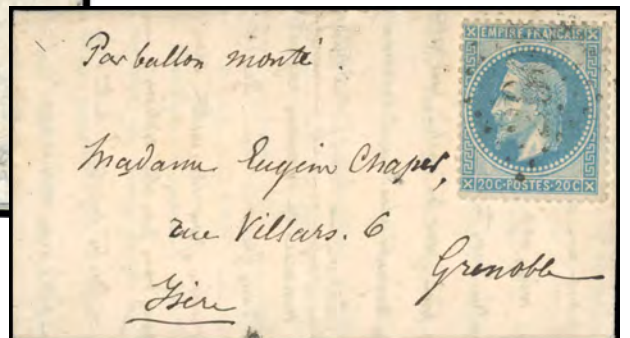 Par ballon monté.
EMPIRE FRANÇAIS
20C·POSTES·20C
Madame Eugène Chaper,
rue Villars. 6
Grenoble
Isère